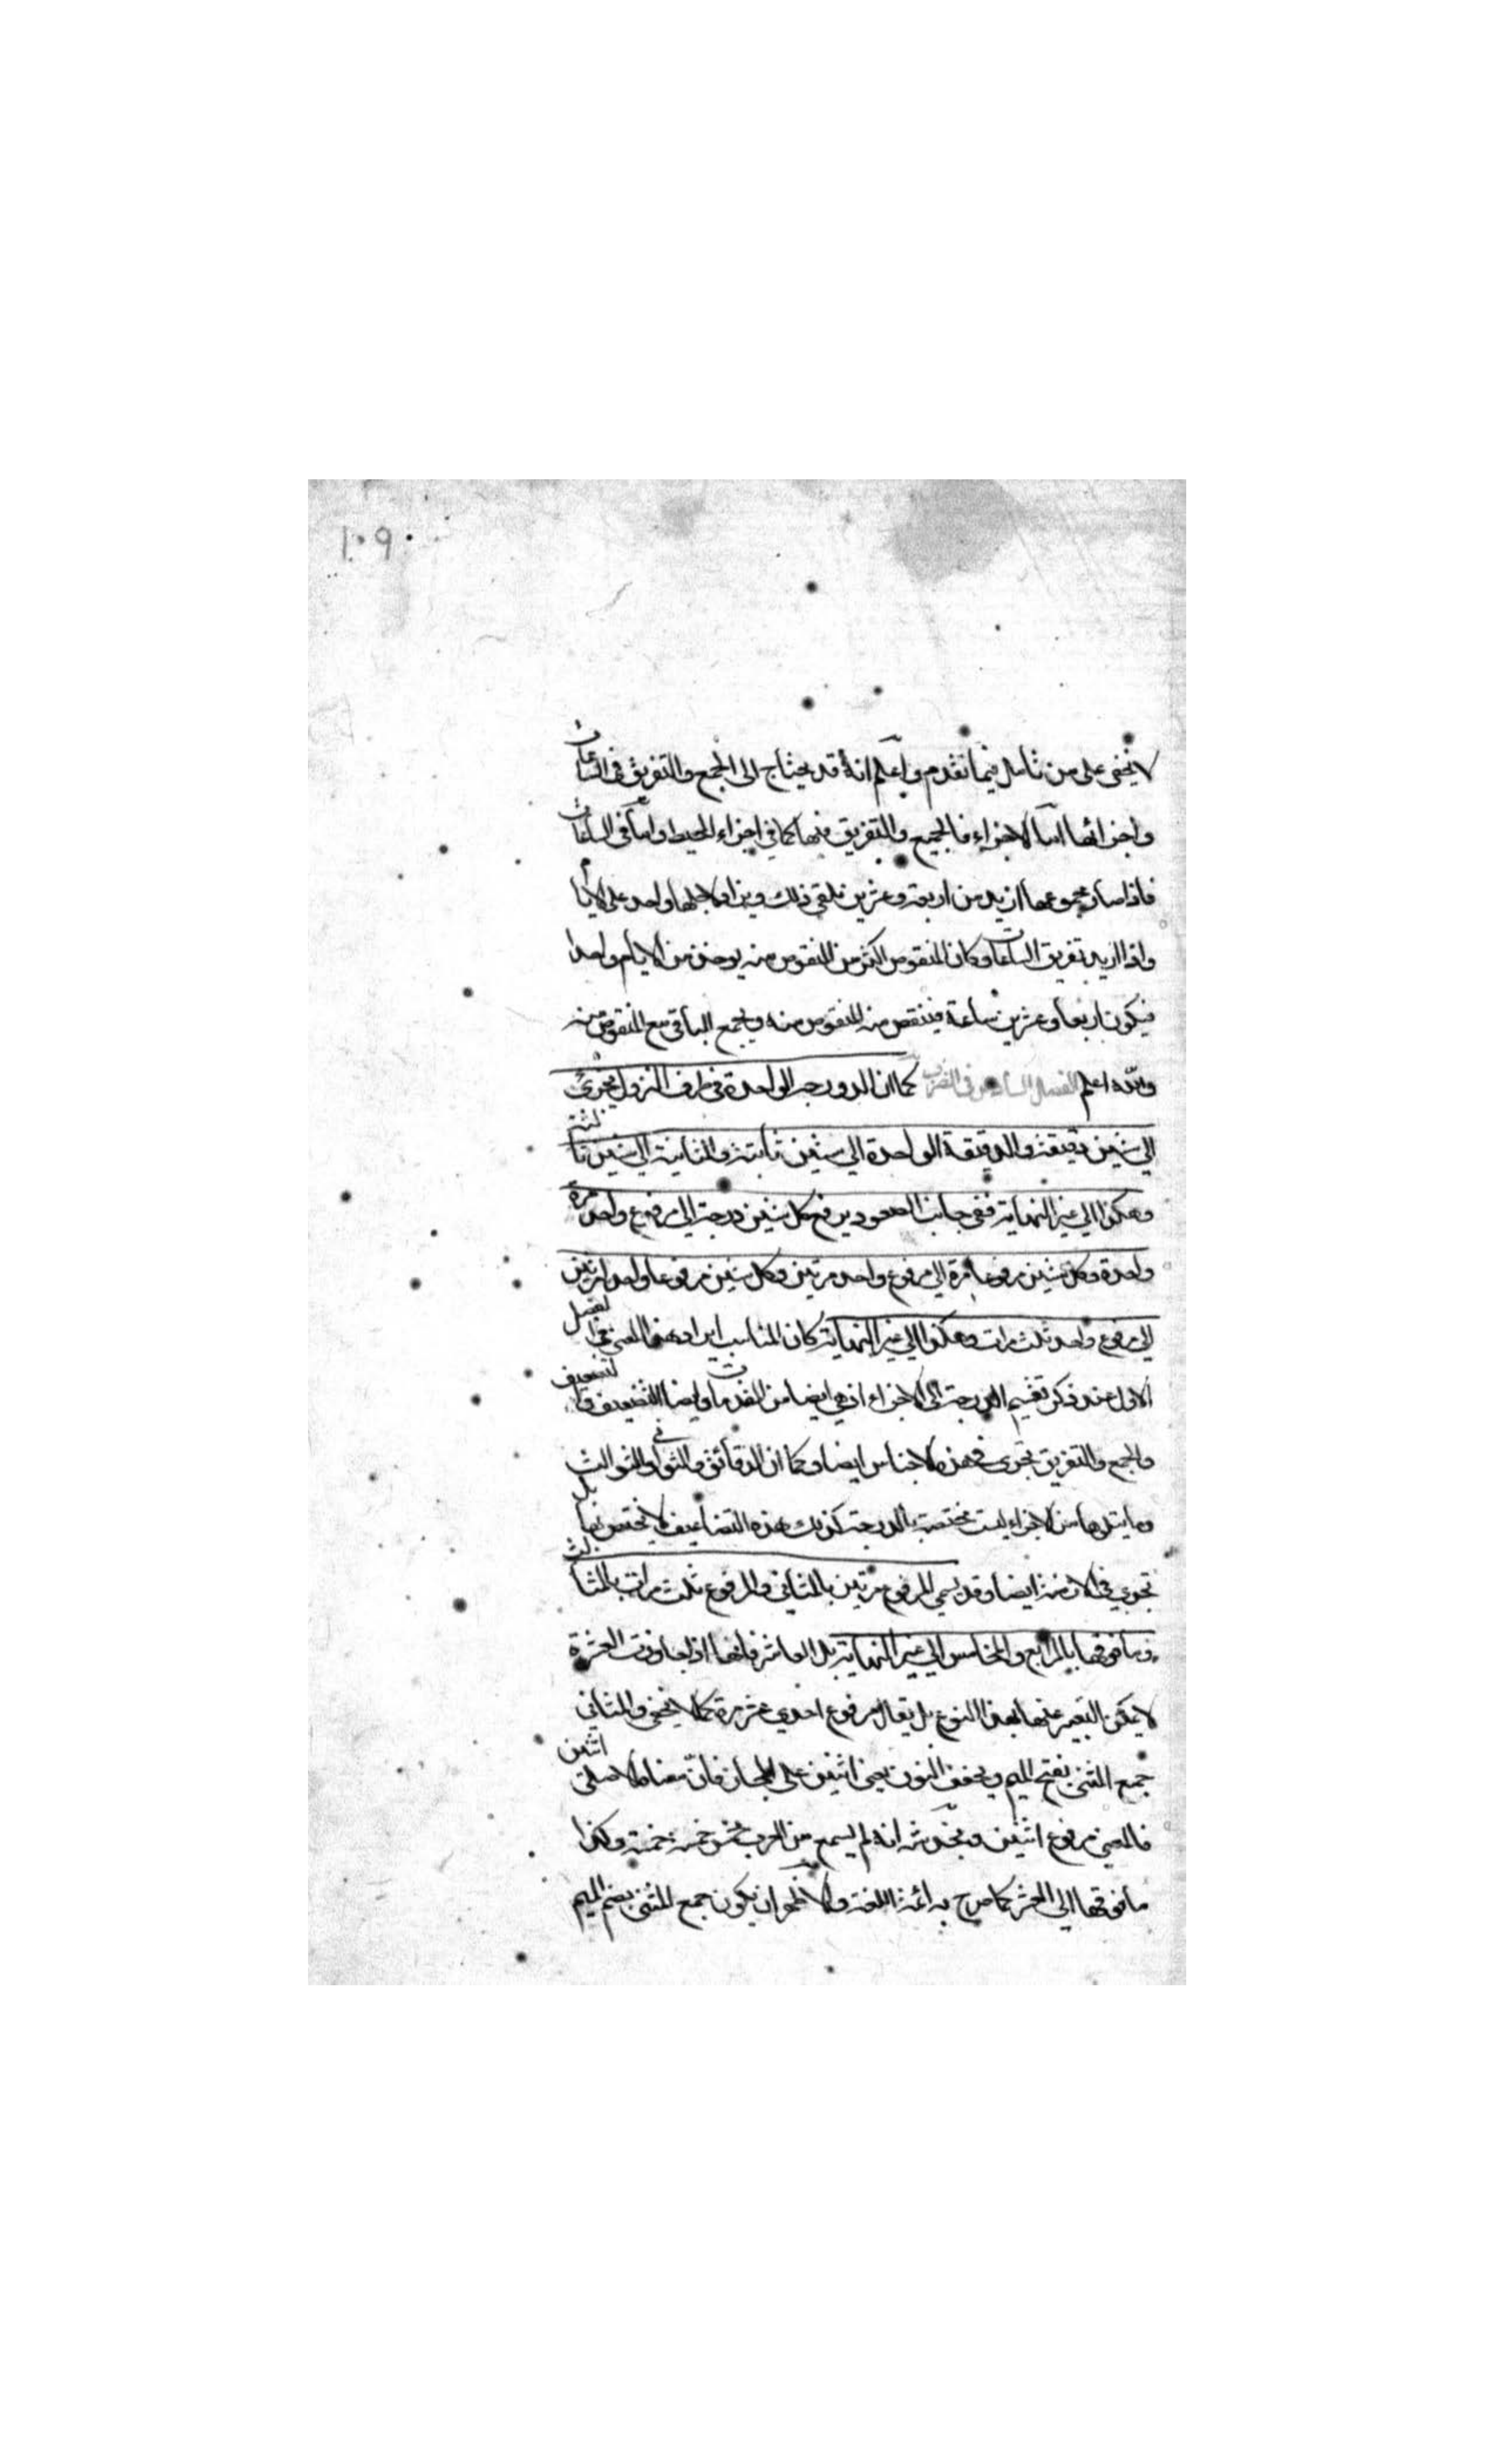 ١٠٩
لا يخفى على من تأمل فيما تقدم واعلم انه قد يحتاج الى الجمع والتفريق فى الساعات
واجزائها اما الاجزاء فالجمع والتفريق فيها كما فى اجزاء المحيط واما فى الساعات
فاذا صار مجموعها ازيد من اربعة وعشرين نلقى ذلك ويزاد لاجلها واحد على الايام
واذا اريد تفريق الساعات وكان المنقوص اكثر من المنقوص منه يوخذ من الايام واحدا
فيكون اربعا وعشرين ساعة فينقص منه المنقوص منه ويجمع الباقى مع المنقوص منه
والله اعلم الفصل السادس فى الضرب كما ان الدرجة الواحدة فى طرف النزول يجزئ
الى ستين دقيقة والدقيقة الواحدة الى ستين ثانية والثانية الى ستين ثالثة
وهكذا الى غير النهاية ففى جانب الصعود يرفع كل ستين درجة الى مرفوع واحد مرة
واحدة وكل ستين مرفوعا مرة الى مرفوع واحد مرتين وكل ستين مرفوعا واحدا مرتين
الى مرفوع واحد ثلث مرات وهكذا الى غير النهاية كان المناسب ايراد هذا المعنى فى الفصل
الاول عند ذكر تقسيم الدرجة الى الاجزاء اذ هى ايضا من المقدمات وايضا التضعيف والتنصيف
والجمع والتفريق تجرى فى هذه الاجناس ايضا وكما ان الدقائق والثوانى والثوالث
وما يتلوها من الاجزاء ليست مختصة بالدرجة كذلك هذه التضاعيف لا تختص بها بل
تجرى فى الازمنة ايضا وقد يسمى المرفوع مرتين بالمثانى والمرفوع ثلث مرات بالمثالث
وما فوقها بالمرابع والمخامس الى غير النهاية بل العاشر فانها اذا جاوزت العشرة
لا يمكن التعبير عنها بهذا النوع بل يقال مرفوع احدى عشر مرة كما لا يخفى والمثانى
جمع المثنى بفتح الميم وتخفيف النون يعنى اثنين على المجاز فان معناه الاصلى اثنين
فالمعنى مرفوع اثنين ويخدوش انه لم يسمع من العرب مخمس خمسة خمسة وكذا
ما فوقها الى العشر كما صرح به ائمة اللغة والاظهر ان يكون جمع المثنى بضم الميم